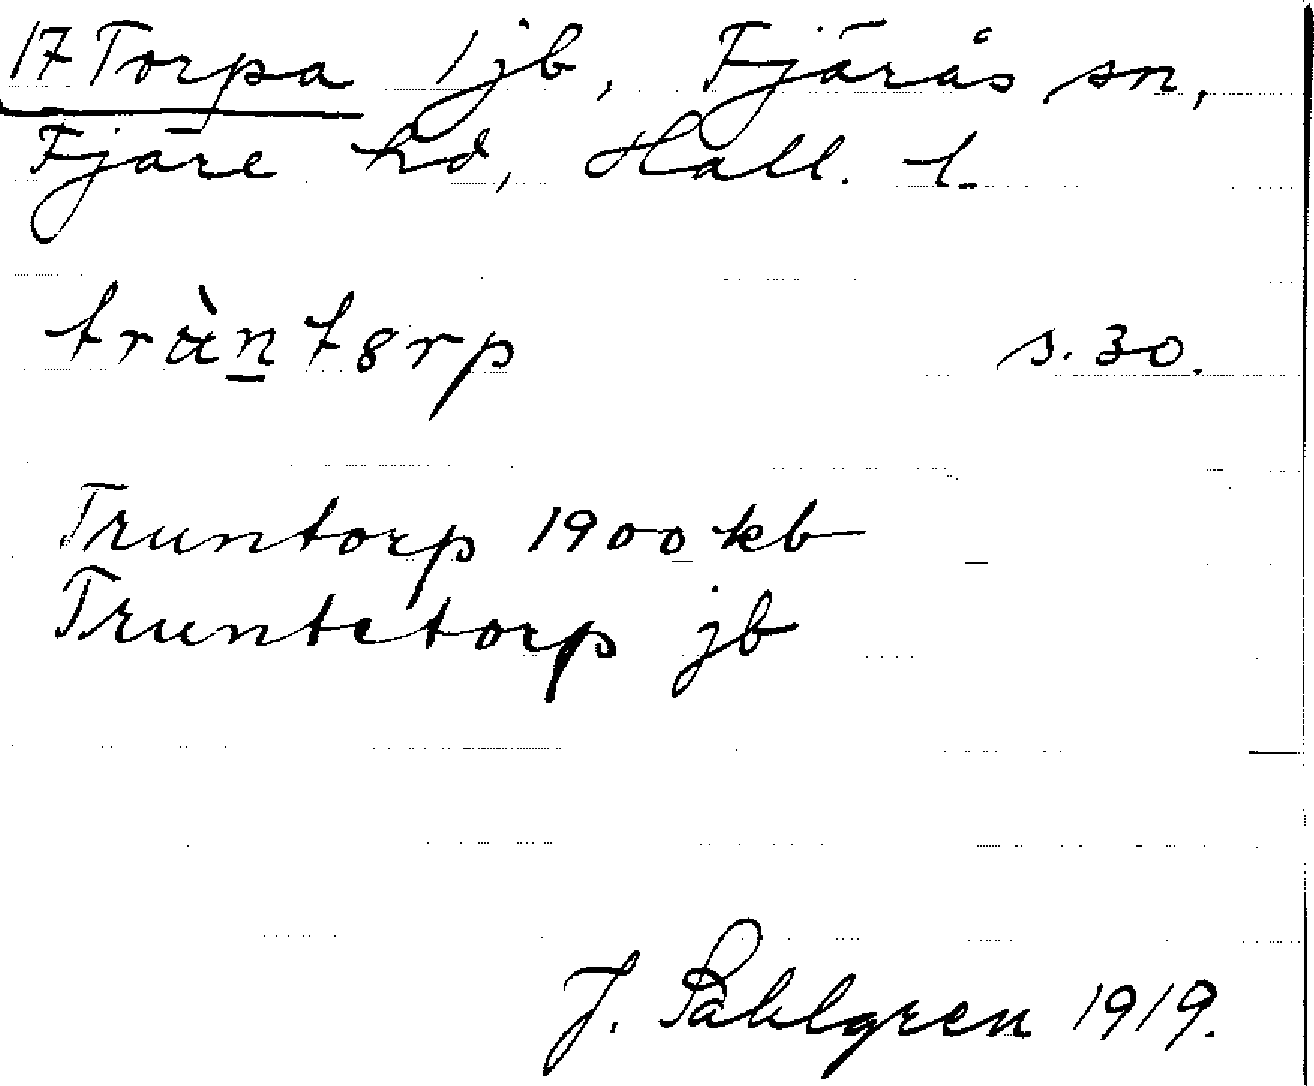 17 Torpa 1 jb, Fjärås sn,
Fjäre hd, Hall. l.
träntorp s. 30.
Truntorp 1900 kb
Truntetorp jb
J. Sahlgren 1919.